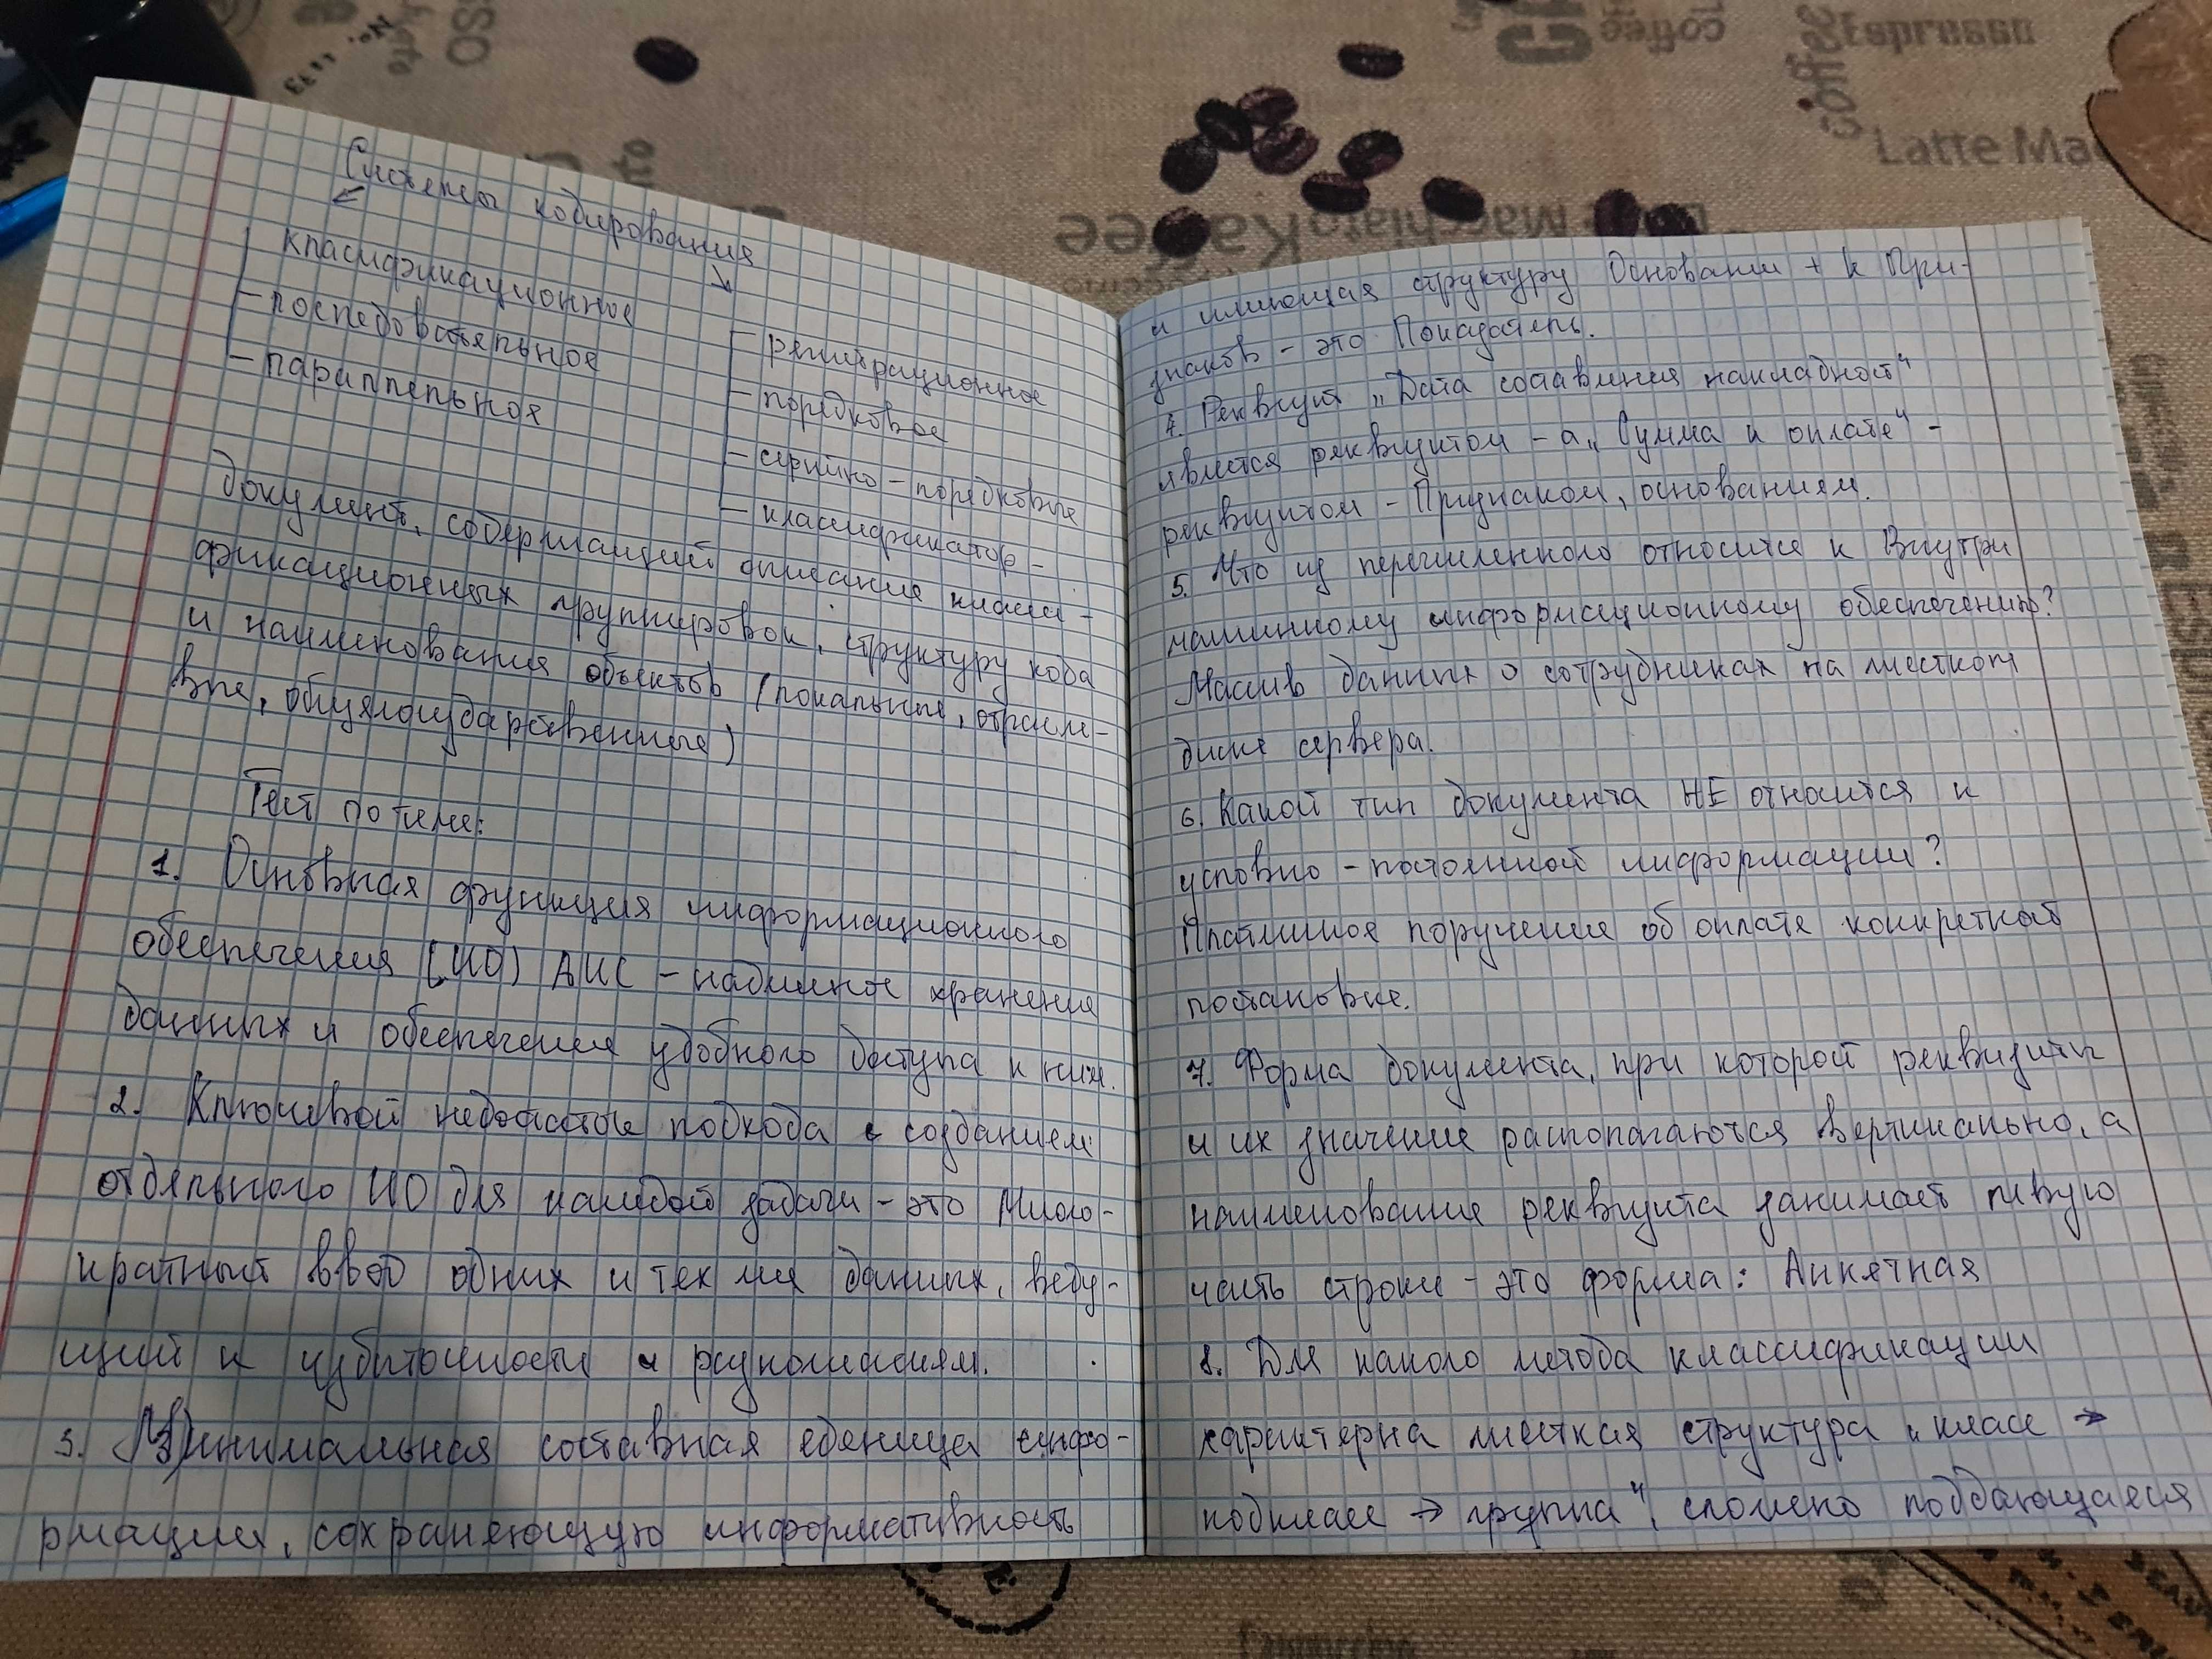 Системы кодирования
класификационное
- последовательное
- параллельное
- регистрационное
- порядковое
- серийно - порядковые
- классификатор -
документ, содержащий описание класси -
фикационных группировок, структуру кода
и наименования объектов (локальные, отрасле-
вые, общегосударственные)
Тест по теме:
1. Основная функция информационного
обеспечения (ИО) АИС - надежное хранение
данных и обеспечение удобного доступа к ним.
2. Ключевой недостаток подхода с созданием
отдельного ИО для каждой задачи - это Много-
кратный ввод одних и тех же данных, веду-
щий к избыточности и разногласиям.
3. Минимальная составная еденица инфо-
рмации, сохраняющую информативность
и имеющая структуру Основание + к При-
знаков - это Показатель.
4. Реквизит „Дата составления накладной"
явлется реквизитом - а „Сумма к оплате" -
реквизитом - Признаком, основанием.
5. Что из перечисленного относится к Внутри
машинному информационному обеспечению?
Массив данных о сотрудниках на жестком
диске сервера.
6. Какой тип документа НЕ относится к
условно - постоянной информации?
Платежное поручение об оплате конкретной
поставки.
7. Форма документа, при которой реквизиты
и их значение располагаются вертикально, а
наименование реквизита занимает левую
часть строки - это форма: Анкетная
8. Для какого метода классификации
характерна жесткая структура „класс →
подкласс → группа", сложно поддающаяся
Latte Ma
Espresso
coffee